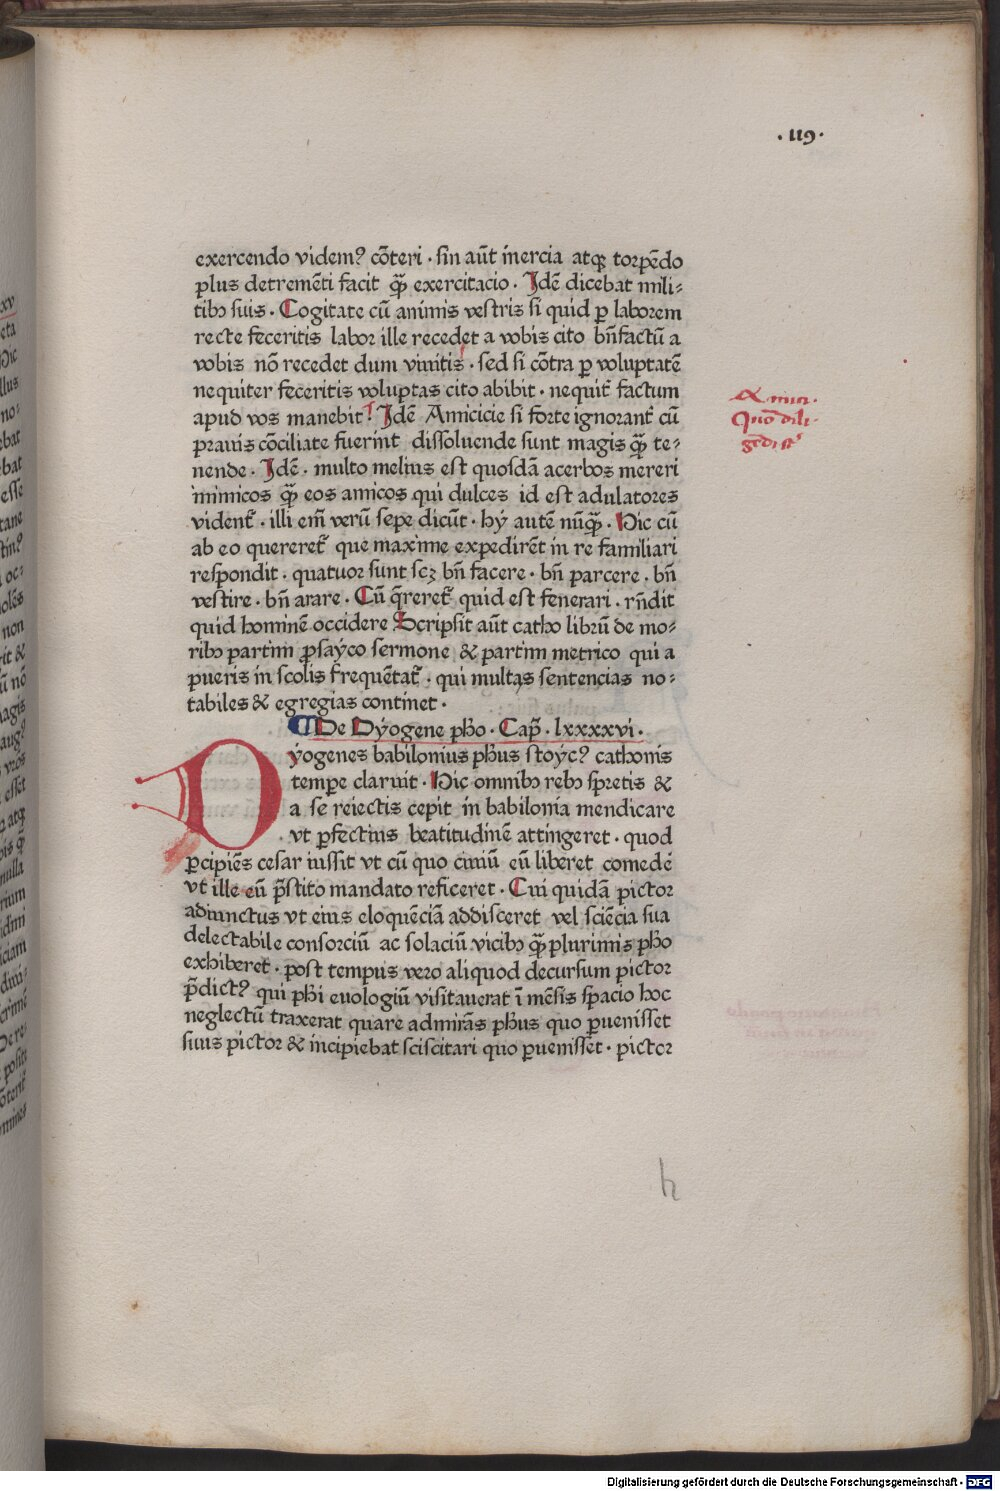 .119.
exercendo videm? cōteri · sin aūt inercia atqꝫ torpēdo
plus detremēti facit qͣ̄ exercitacio · Idē dicebat mili-
tibꝰ suis · Cogitate cū animis vestris si quid ꝑ laborem
recte feceritis labor ille recedet a vobis cito bn̄factū a
vobis nō recedet dum viuitis · sed si cōtra ꝑ voluptatē
nequiter feceritis voluptas cito abibit · nequit̄ factum
apud vos manebit Idē Amicicie si forte ignorant̄ cū
prauis cōciliate fuerint dissoluende sunt magis qͣ̄ te-
nende · Idē · multo melius est quosdā acerbos mereri
inimicos qͣ̄ eos amicos qui dulces id est adulatores
vident̄ · illi em̄ verū sepe dicūt · hÿ autē nūqͣ̄ · Hic cū
ab eo quereret̄ que maxime expedirēt in re familiari
respondit · quatuor sunt scꝫ bn̄ facere · bn̄ parcere · bn̄
vestire · bn̄ arare · Cū q̄reret̄ quid est fenerari · rn̄dit
quid hominē occidere Scripsit aūt catho librū de mo-
ribꝰ partim ꝓsaÿco sermone & partim metrico qui a
pueris in scolis frequētat̄ · qui multas sentencias no-
tabiles & egregias continet ·
De Dÿogene pħo · Cap̄ · lxxxxvi ·
Dÿogenes babilonius pħus stoÿc? cathonis
tempe claruit · Hic omnibꝰ rebꝰ spretis &
a se reiectis cepit in babilonia mendicare
vt ꝑfectius beatitudinē attingeret · quod
ꝑcipiēs cesar iussit vt cū quo ciuiū eū liberet comede
vt ille eū p̄stito mandato reficeret · Cui quidā pictor
adiunctus vt eius eloquēciā addisceret vel sciēcia sua
delectabile consorciū ac solaciū vicibꝰ qͣ̄ plurimis pħo
exhiberet · post tempus vero aliquod decursum pictor
p̄dict? qui pħi euologiū visitauerat ī mēsis spacio hoc
neglectū traxerat quare admirās pħus quo ꝑuenisset
suus pictor & incipiebat sciscitari quo ꝑuenisset · pictor
Quō dili-
h
Digitalisierung gefördert durch die Deutsche Forschungsgemeinschaft - DFG